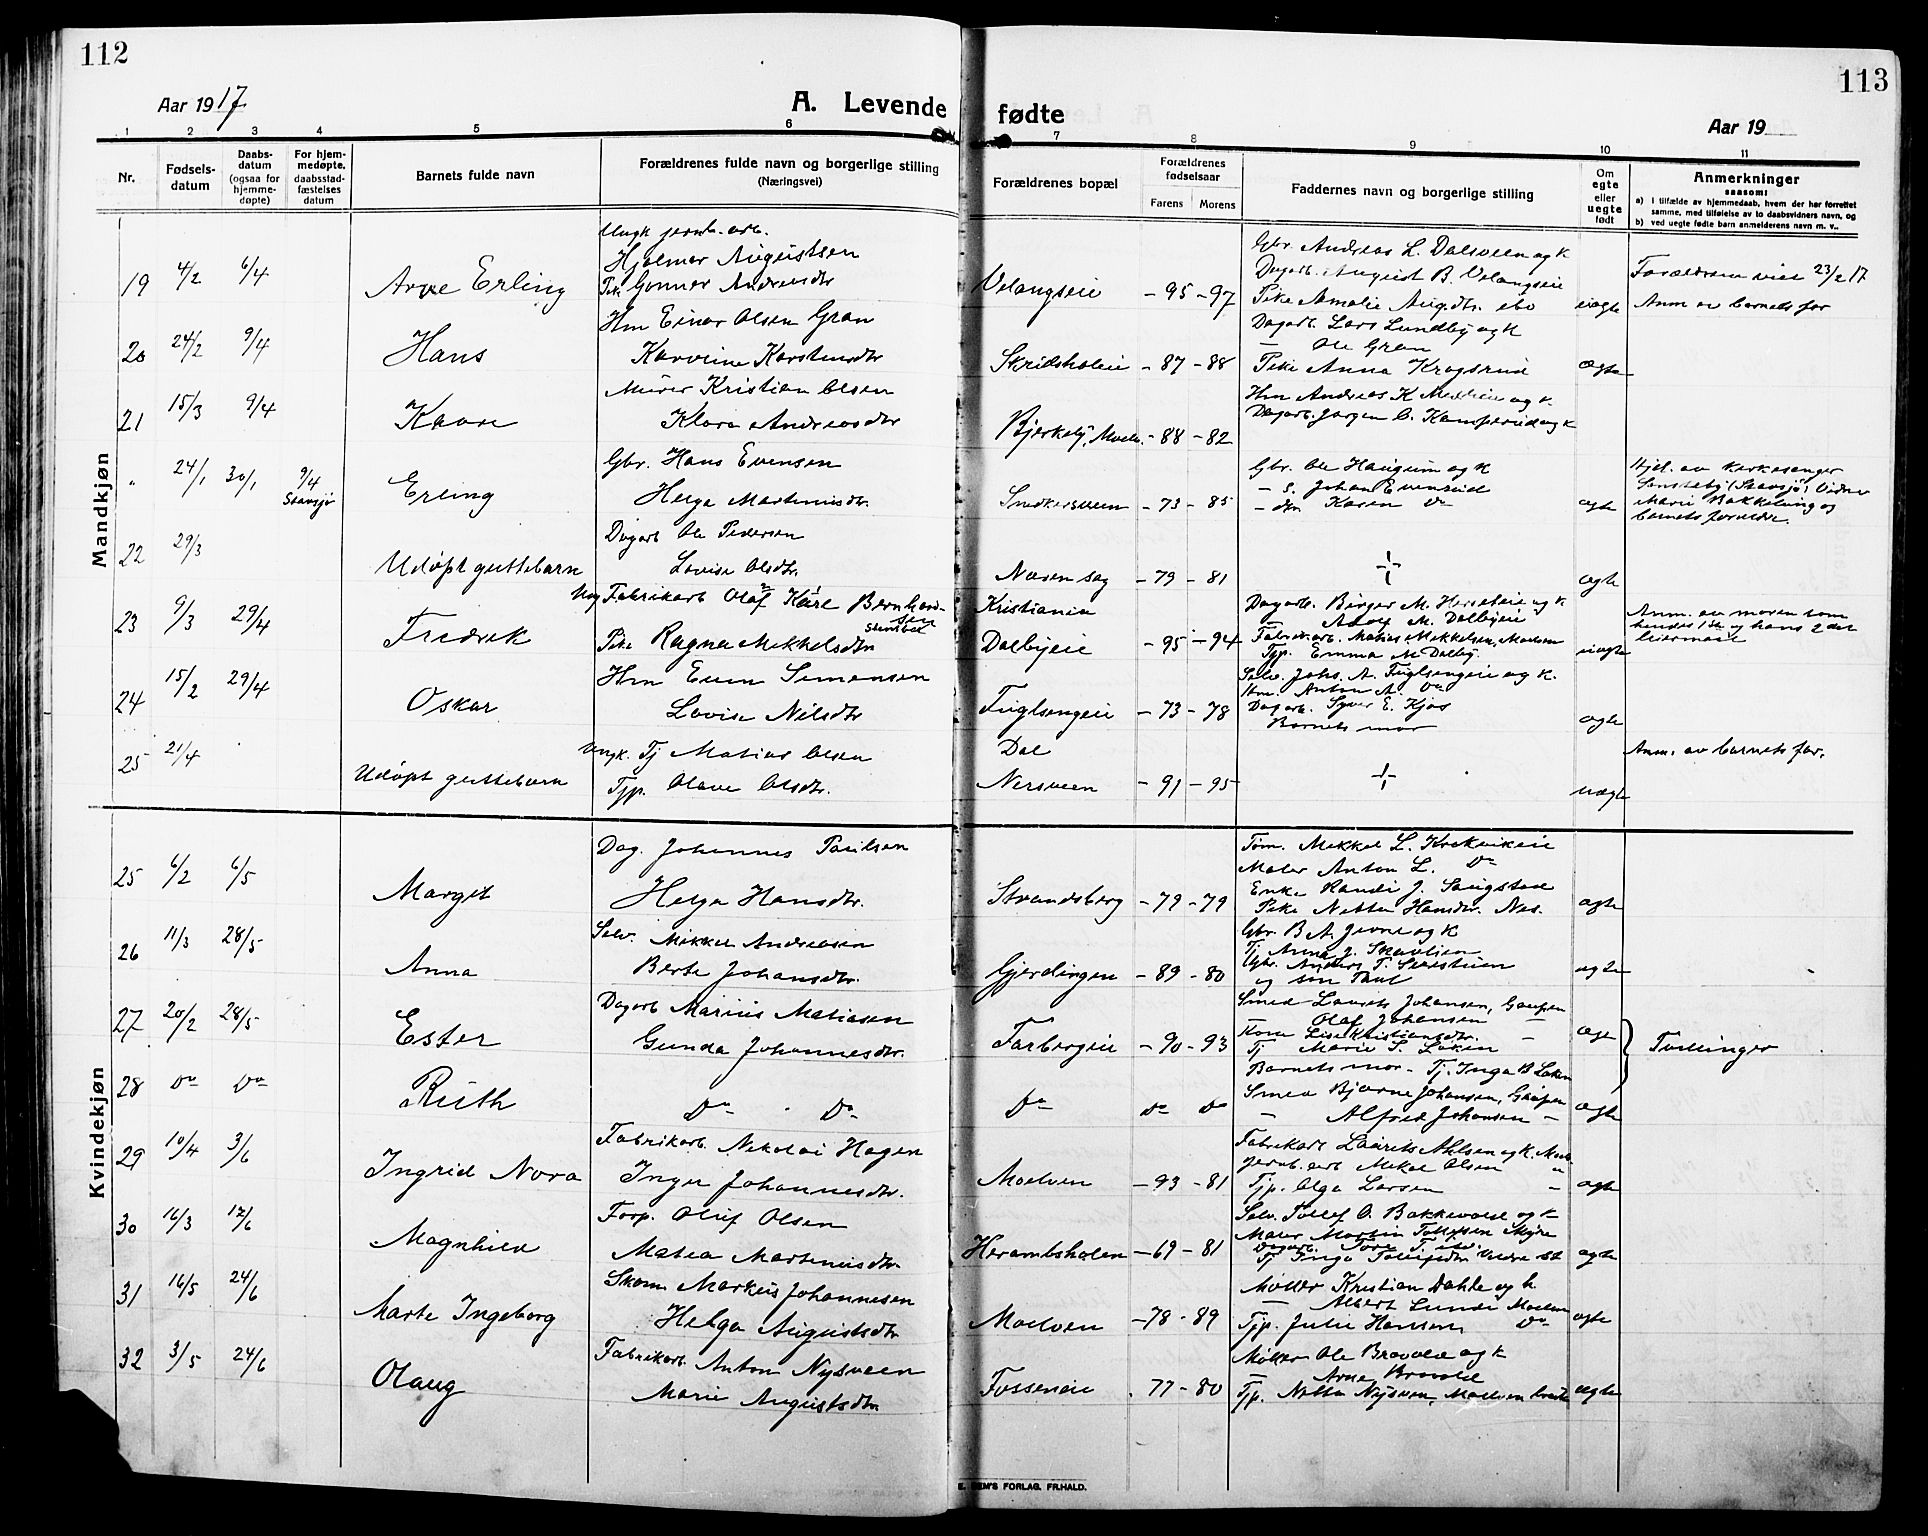 112
Aar 1917
A. Levende
1 2 3 4 5 6
Nr.
Fødsels-
datum
Daabs-
datum
(ogsaa for
hjemme-
døpte)
For hjem-
medøpte,
daabsstad-
fæstelses
datum
Barnets fulde navn
Forældrenes fulde navn og borgerlige stilling
(Næringsvei)
Mandkjøn
Ungk jernb. arb.
Hjalmar Augustsen
19 4/2 6/4 Arne Erling Pike Gonner Andreasdtr
Hm Einar Olsen Gran
20 24/2 9/4 Hans Karveine Karstensdtr
Murer Kristian Olsen
21 15/3 9/4 Kaare Klara Andreasdtr
Gbr. Hans Evensen
" 24/1 30/1 9/4 Stavsjø Erling Helga Martinusdtr.
Dagarb Ole Pedersen
22 29/3 Udøpt guttebarn Lovise Olsdtr.
Ung Fabrikarb Olaf Kåre Bernhard-
sen
23 9/3 29/4 Fredrik Pike Ragna Mekkelsdtr
Hm Even Simensen
24 15/2 29/4 Oskar Lovise Nilsdtr
Ungk. Tj Matias Olsen
25 21/4 Udøpt guttebarn Tjp. Olave Olsdtr.
Kvindekjøn
Dag. Johannes Paulsen
25 6/2 6/5 Margit Helga Hansdtr.
Selv. Mikkel Andreasen
26 11/3 28/5 Anna Berte Johansdtr.
Dagarb Marius Matiasen
27 20/2 28/5 Ester Gunda Johannesdtr.
28 Do Do Ruth Do Do
Fabrikarb. Nikolai Hagen
29 10/4 3/6 Ingrid Nora Inga Johannesdtr.
Forp. Oluf Olsen
30 16/3 17/6 Magnhild Matea Martinusdtr
Skom. Markus Johannesen
31 16/5 24/6 Marte Ingeborg Helga Augustsdtr
Fabrikarb. Anton Nysveen
32 3/5 24/6 Olaug Marie Augustsdtr.
113
fødte
Aar 19
7 8 9 10 11
Forældrenes bopæl
Forældrenes
fødselsaar
Farens Morens
Faddernes navn og borgerlige stilling
Om
egte
eller
uegte
født
Anmerkninger
saasom:
a) I tilfælde av hjemmedaab, hvem der har forrettet
samme, med tilføielse av to daabsvidners navn, og
b) ved uegte fødte barn anmelderens navn m. v..
Gbr Andreas L. Dalsveen og k
Dagarb. August B. Velangseie
Velangseie - 95 - 97 Pike Amalie Aug.dtr. ibo uægte
Forældrene viet 23/2 17
Anm av barnets far
Dagarb. Lars Lundby og k
— Ole Gran
Skridsholeie - 87 - 88 Pike Anna Krogsrud ægte
Hm Andreas K og k
Dagarb. Jørgen C. og k
Bjerkely, Moelv. - 88 - 82
Gbr. Ole Haugum og k
— s. Johan Evensrud
- 73 - 85 — dtr. Karen Do ægte
Hjd. av kirkesanger
(Stavsjø) Vidner
Marie og
barnets forældre.
Næsen sag - 79 - 81 ægte
Kristiania
Dagarb. Birger M. og k
Adolf M. Dalbyeie
Dalbyeie - 95 - 94 Fabrikarb. Matias Mekkelsen, Moelven
Tjp. Emma M. Dalby. uægte
Anm. av moren som
hendes 1ste og hans 2det
leiermaal
Selv. Johs. A. Fuglsengeie og k.
Hm. Anton A. Do
Fuglsengeie - 73 - 78 Dagarb. Syver E. Kjos
Barnets mor ægte
Dal
Nersveen - 91 - 95 uægte
Anm. av barnets far.
Tøm. Mekkel L.
Maler Anton L. Do
Enke Randi J. Saugstad
Strandsberg - 79 - 79 Pike Netta Hansdtr. Nes. ægte
Gbr. B A. Jevne og k
Tj Anna J.
Gjerdingen - 89 - 80 Gbr. Anders T.
og søn Paul ægte
Smed Laurits Johansen, Gaupen
— Olaf Johansen —
Farbergeie - 90 - 93 Kone Lise Kristiansdtr. —
Tj Marie S. Løken ægte
Tvillinger
Barnets mor - Tj. Inga B Løken
Smed Bjarne Johansen, Gaupen
Do Do Do — Alfred Johansen — ægte
Fabrikarb Laurits Ahlsen og k. Moelv
Jernb. arb Mekal Olsen "
Moelven - 93 - 81 Tjp. Olga Larsen — ægte
Selv. Tollef O. Bakkevold og k
Maler Martin Tollefsen
Herambsholen - 69 - 81 Tj Inga ægte
Møller Kristian Dahle og k.
— Albert Lunde Moelven
Moelven - 78 - 89 Tjp. Julie Hansen Do ægte
Møller Ole Bravold og k
— Arne Bravold
Fosseneie . 77 - 80 Tjp. Netta Nysveen, Moelven ægte
E. SEM'S FORLAG. FR.HALD.